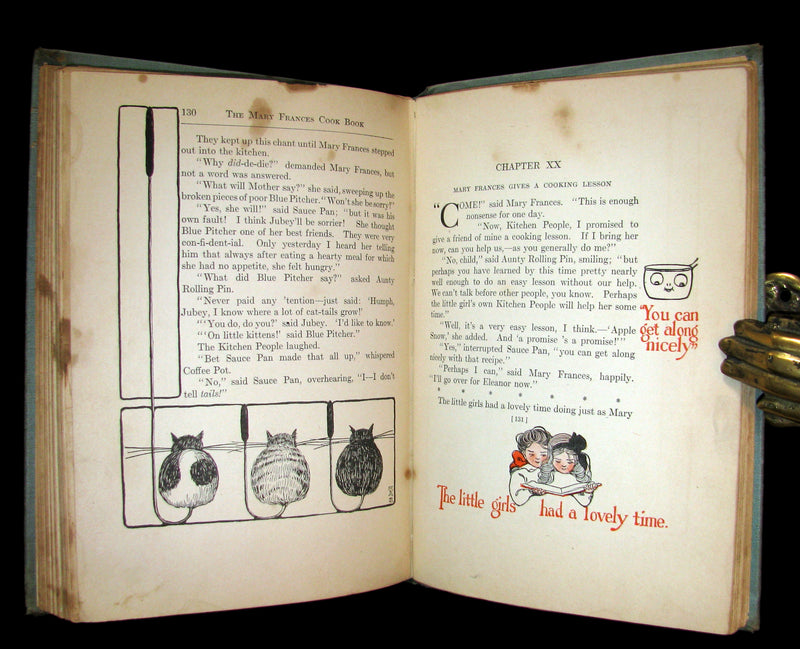 130 The Mary Frances Cook Book
They kept up this chant until Mary Frances stepped
out into the kitchen.
“Why did-de-die?” demanded Mary Frances, but
not a word was answered.
“What will Mother say?” she said, sweeping up the
broken pieces of poor Blue Pitcher. “Won't she be sorry!”
“Yes, she will!” said Sauce Pan; “but it was his
own fault! I think Jubey'll be sorrier! She thought
Blue Pitcher one of her best friends. They were very
con-fi-dent-ial. Only yesterday I heard her telling
him that always after eating a hearty meal for which
she had no appetite, she felt hungry.”
“What did Blue Pitcher say?” asked Aunty
Rolling Pin.
“Never paid any 'tention—just said: 'Humph,
Jubey, I know where a lot of cat-tails grow!'
“'You do, do you?' said Jubey. 'I'd like to know.'
“'On little kittens!' said Blue Pitcher.”
The Kitchen People laughed.
“Bet Sauce Pan made that all up,” whispered
Coffee Pot.
“No,” said Sauce Pan, overhearing, “I—I don't
tell tails!”
CHAPTER XX
MARY FRANCES GIVES A COOKING LESSON
“COME!” said Mary Frances. “This is enough
nonsense for one day.
“Now, Kitchen People, I promised to
give a friend of mine a cooking lesson. If I bring her
now, can you help us,—as you generally do me?”
“No, child,” said Aunty Rolling Pin, smiling; “but
perhaps you have learned by this time pretty nearly
well enough to do an easy lesson without our help.
We can't talk before other people, you know. Perhaps
the little girl's own Kitchen People will help her some
time.”
“Well, it's a very easy lesson, I think.—'Apple
Snow,' she added. And 'a promise 's a promise!'”
“Yes,” interrupted Sauce Pan, “you can get along
nicely with that recipe.”
“Perhaps I can,” said Mary Frances, happily.
“I'll go over for Eleanor now.”
* * * * * * *
The little girls had a lovely time doing just as Mary
[131]
“You can
get along
nicely”
The little girls had a lovely time.